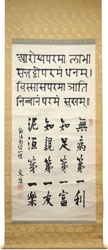 आरोग्यपरमा लाभा
सन्तुट्ठी परमं धनम्।
विस्सासपरमा ञाति
निब्बानं परमं सुखम्।
無病第一利
知足第一富
知親第一友
泥洹第一樂